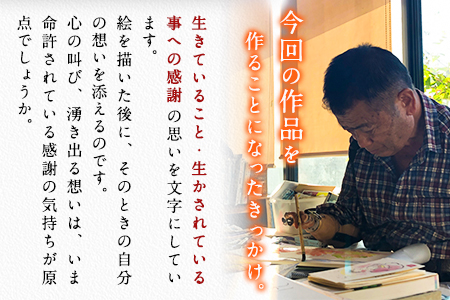 今回の作品を
作ることになっだきっかけ。
生きていること・生かされている
事への感謝の思いを文字にしてい
ます。
絵を描いた後に、そのときの自分
の想いを添えるのです。
心の叫び、湧き出る想いは、いま
命許されている感謝の気持ちが原
点でしょうか。